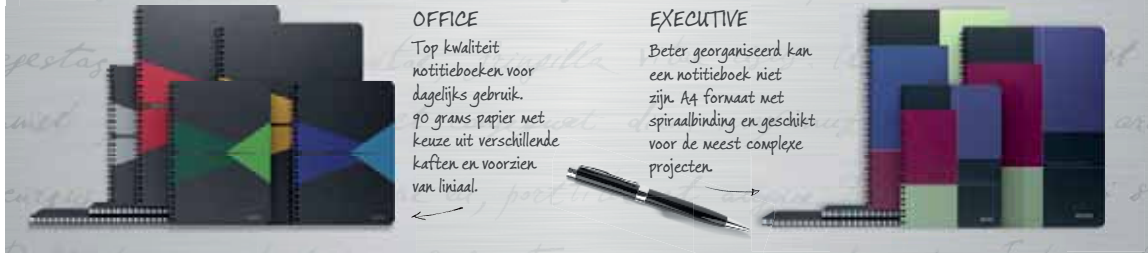 OFFICE
Top kwaliteit
notitieboeken voor
dagelijks gebruik.
90 grams papier met
keuze uit verschillende
kaften en voorzien
van liniaal.
EXECUTIVE
Beter georganiseerd kan
een notitieboek niet
zijn. A4 formaat met
spiraalbinding en geschikt
voor de meest complexe
projecten.